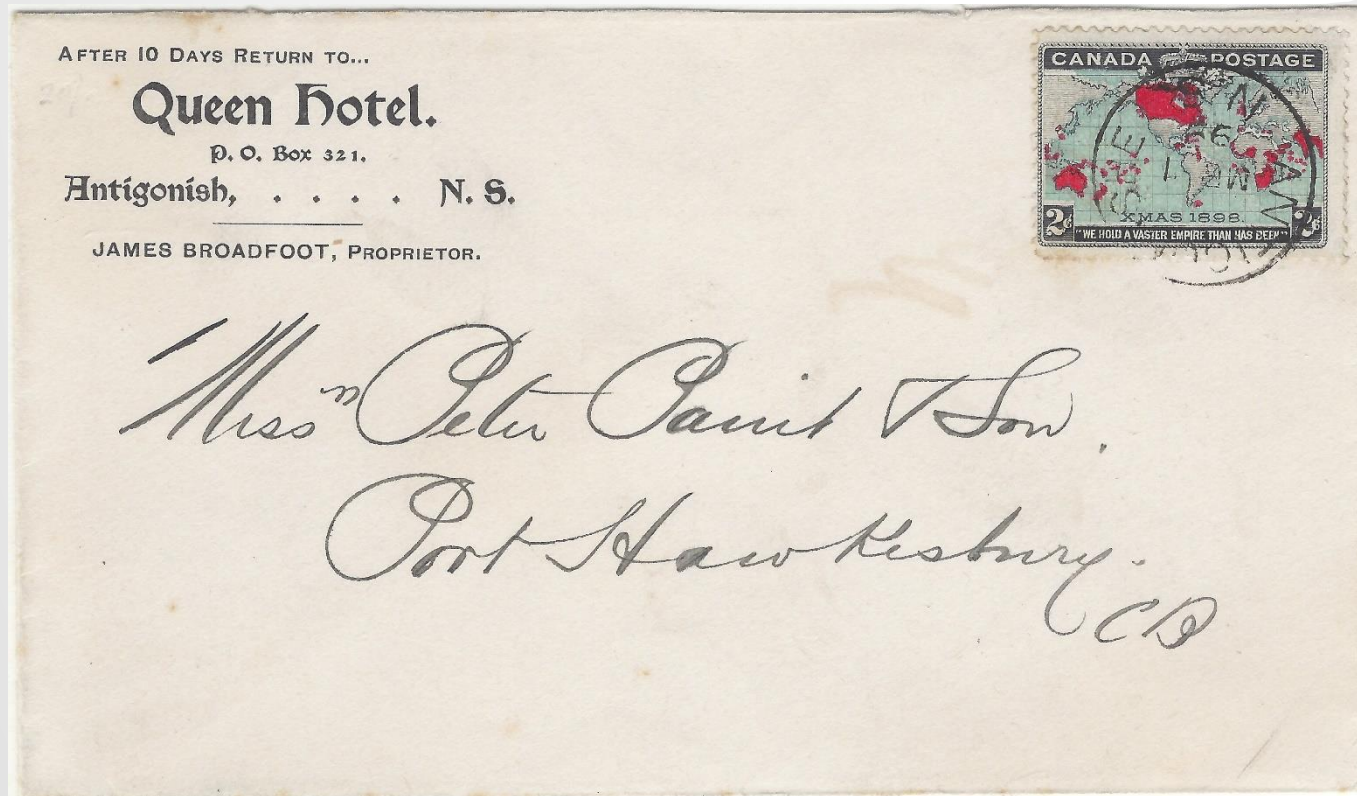 AFTER 10 DAYS RETURN TO...
Queen Hotel.
P. O. Box 321.
Antigonish, . . . . N. S.
JAMES BROADFOOT, PROPRIETOR.
CANADA POSTAGE
XMAS 1898.
2c 2c
"WE HOLD A VASTER EMPIRE THAN HAS BEEN"
Messrs Peter Paint & Son.
Port Hawkesbury.
CB